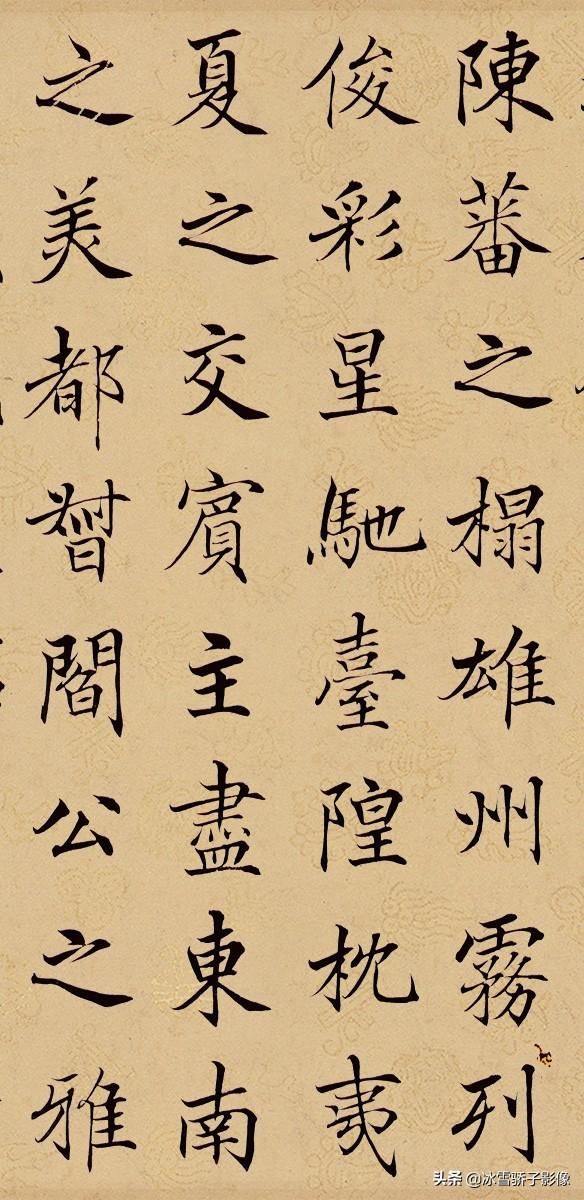 陳蕃之榻雄州霧列
俊彩星馳臺隍枕夷
夏之交賓主盡東南
之美都督閻公之雅
头条 @冰雪骄子影像